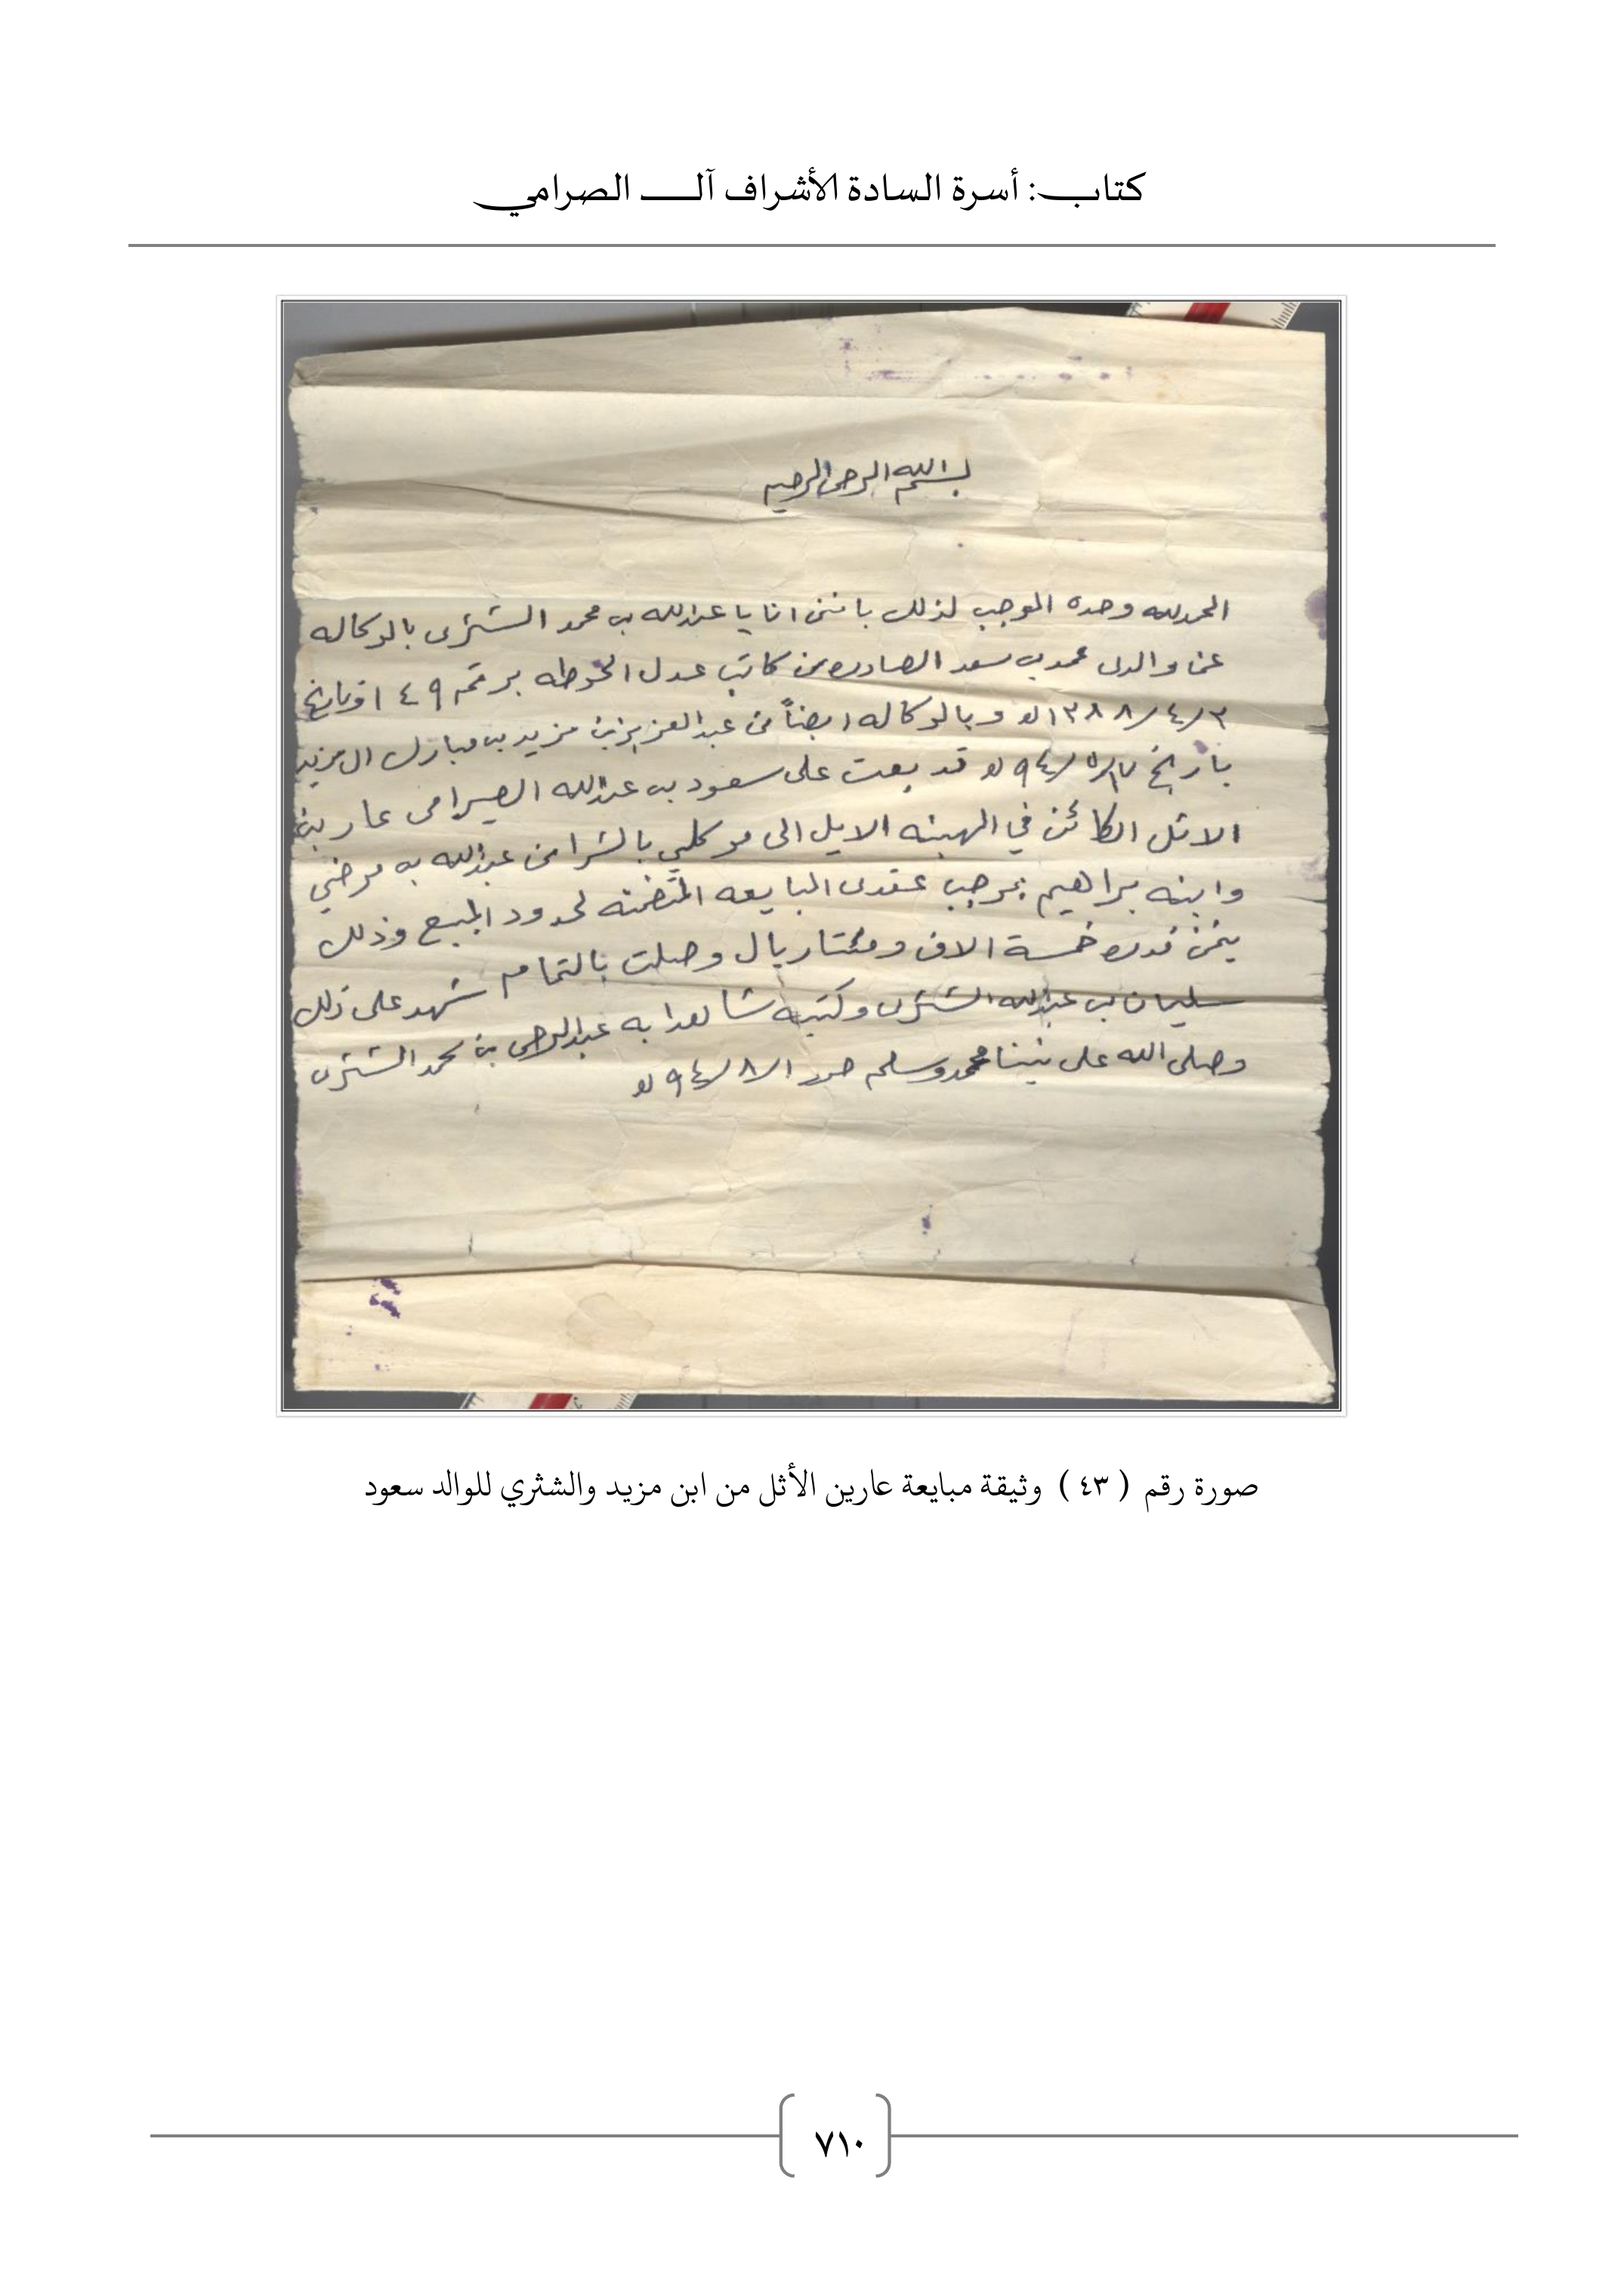 كتاب: أسرة السادة الأشراف آل الصرامي
بسم الله الرحمن الرحيم
الحمد لله وحده الموجب لذلك بانني انا يا عبدالله بن محمد الشثرى بالوكاله
عن والدى محمد بن سعد الصادره من كاتب عدل الحوطه برقم ٤٩ ا وتاريخ
٣/٤/١٣٨٨ه وبالوكاله ايضاً من عبدالعزيز بن مزيد بن مبارك ال مزيد
بتاريخ ٩٤/٥/١٧ه قد بعت على سعود بن عبدالله الصيرامى عارين
الاثل الكائن في المهينه الايل الى موكلي بالشرا من عبدالله بن مرضي
وابنه براهيم بموجب عقدى المبايعه المتضمنه لحدود المبيع وذلك
بثمن قدره خمسة الاف ومئتا ريال وصلت بالتمام شهد على ذلك
سليمان بن عبدالله الشثرى وكتبه شاهدا به عبدالرحمن بن محمد الشثرى
وصلى الله على نبينا محمد وسلم حرر ١/٨/٩٤ه
صورة رقم ( ٤٣ ) وثيقة مبايعة عارين الأثل من ابن مزيد والشثري للوالد سعود
٧١٠